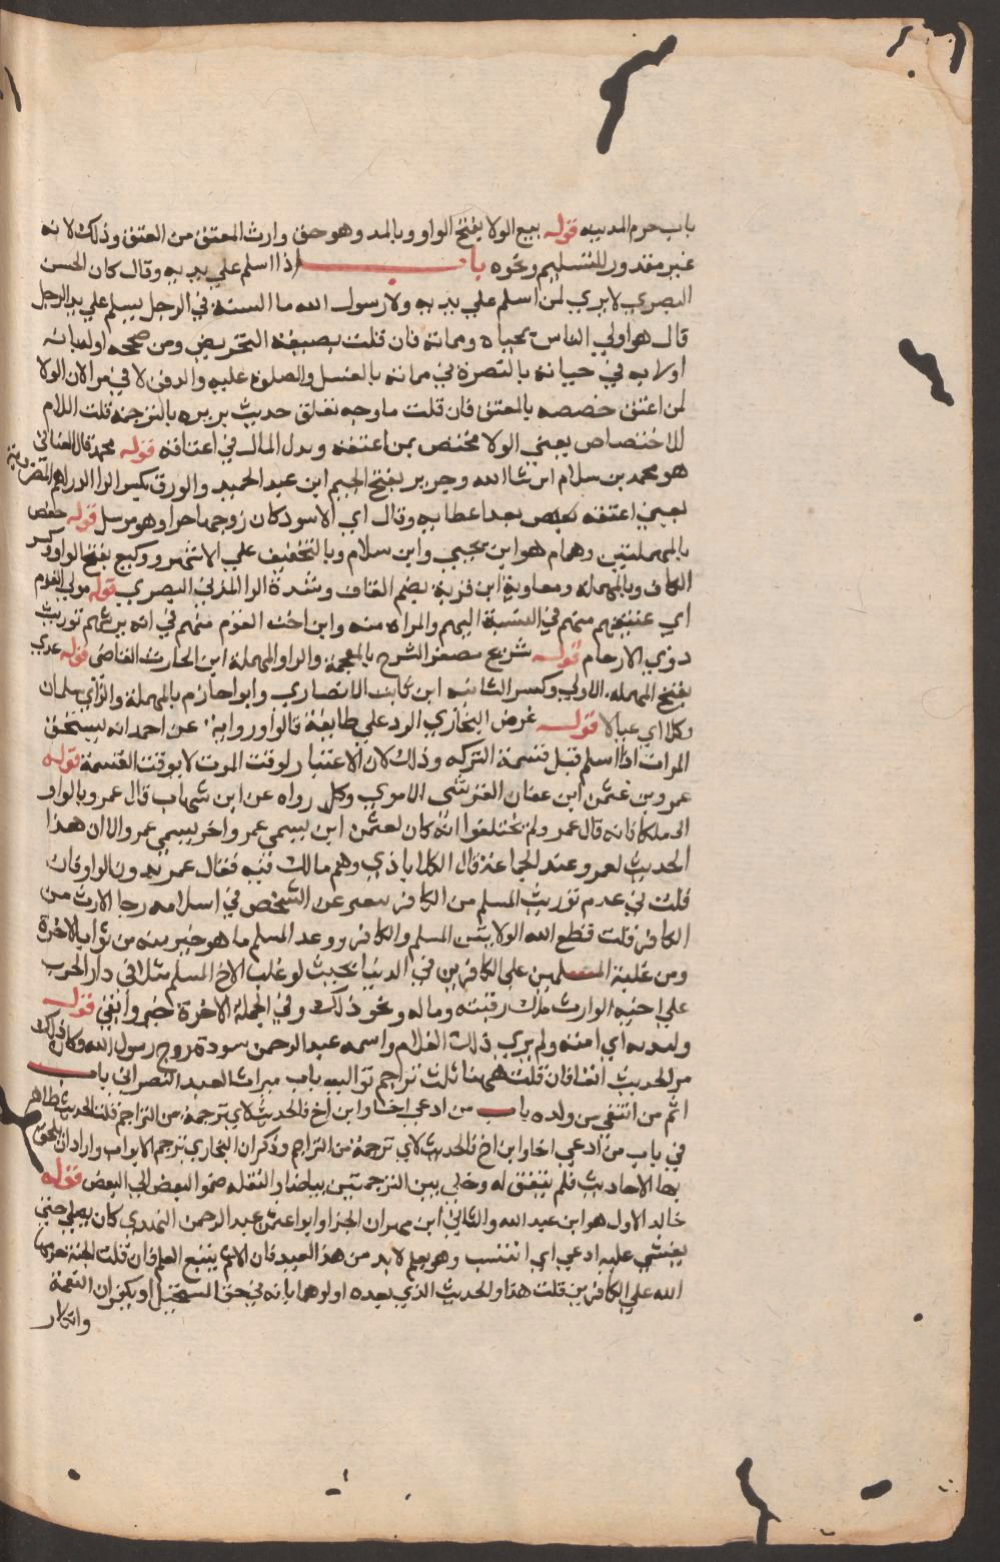 باب حرم المدينه قوله بيع الولا بفتح الواو وبالمد وهو حق وارث المعتق من العتق وذلك لانه
غير مقدور للتسليم ونحوه باب اذا اسلم علي يديه وقال كان الحسن
البصري لا يري لمن اسلم علي يديه ولا رسول الله ما السنة في الرجل يسلم علي يد الرجل
قال هو اولي الناس بمحياه ومماته فان قلت بصيغة التمريض ومن صححه اوله بانه
اولا به في حياته بالنصرة في مماته بالغسل والصلوة عليه والدفن لا في ميراثه لان الولا
لمن اعتق خصصه بالمعتق فان قلت ما وجه تعلق حديث بريره بالترجمة قلت اللام
للاختصاص يعني الولا مختص بمن اعتقه وبدل المال في اعتاقه قوله محمد قال الغساني
هو محمد بن سلام ان شا الله وجرير بفتح الجيم ابن عبد الحميد والورق بكسر الرا الدراهم المضروبة
يعني اعتقه بعد اعطايه وقال اي الاسود كان زوجها حرا وهو مرسل قوله حفص
بالمهملتين وهمام هو ابن يحيي وابن سلام وبالتخفيف علي الاشهر ووكيع بفتح الواو وكسر
الكاف وبالمهملة ومعاوية ابن قرة بضم القاف وشدة الرا المزني البصري قوله مولي القوم
اي عتيقهم منهم في النسبة اليهم والمراه منه وابن اخت القوم منهم في انه يرثهم توريث
ذوي الارحام قوله شريح مصغر الشرح بالمعجمة والرا والمهملة ابن الحارث القاضي قوله عدي
بفتح المهمله الاولي وكسر الثانيه ابن ثابت الانصاري وابو احازم بالمهملة والزاي سلمان
وكلا اي عيالا قوله غرض البخاري الرد علي طايفة قالوا ورواية عن احمد انه يستحق
الميراث اذا اسلم قبل قسمة التركه وذلك لان الاعتبار لوقت الموت لا بوقت القسمة قوله
عمرو بن عثمن ابن عفان القرشي الاموي وكل رواه عن ابن شهاب قال عمرو بالواو
الا ملكا فانه قال عمر ولم يختلفوا انه كان لعثمن ابن يسمي عمر واخر يسمي عمرو الا ان هذا
الحديث لعمرو عند الجماعة قال الكلاباذي وهم مالك فيه فقال عمر بدون الواو فان
قلت في عدم توريث المسلم من الكافر عن الشخص في اسلامه رجا الارث من
الكافر قلت قطع الله الولا بين المسلم والكافر ووعد المسلم ما هو خير منه من ثواب الاخرة
ومن غلبة المسلمين علي الكافرين في الدنيا بحيث لو غلب الاخ المسلم مثلا في دار الحرب
علي اخيه الوارث ملك رقبته وماله ونحو ذلك وفي الجملة الاخرة خير وابقي قوله
وليده اي امته ولم يري ذلك الغلام واسمه عبد الرحمن سودة زوج رسول الله وكان ذلك
من الحديث انفا فان قلت ههنا ثلث تراجم توالية باب ميراث العبد النصراني باب
اثم من انتفي من ولده باب من ادعي اخا وابن اخ فالحديث لاي ترجمة من التراجم قلت الحديث ظاهر
في باب من ادعي اخا وابن اخ فالحديث لاي ترجمة من التراجم وذكر ان البخاري ترجم الابواب واراد ان يلحق
بها الاحاديث فلم يتفق له وخلي بين الترجمتين بياضا والنقله ضموا البعض الي البعض قوله
خالد الاول هو ابن عبد الله والثاني ابن مهران الحذا وابو اعثمن عبد الرحمن النهدي كان يصلي حتي
يغشي عليه ادعي اي انتسب وهو يعلم لا بد من هذا القيد فان الاثم يتبع العلم فان قلت الجنة حرمها
الله علي الكافرين قلت هذا والحديث الذي بعده اولوهما بانه في حق المستحل او بكفران النعمة
وانكار